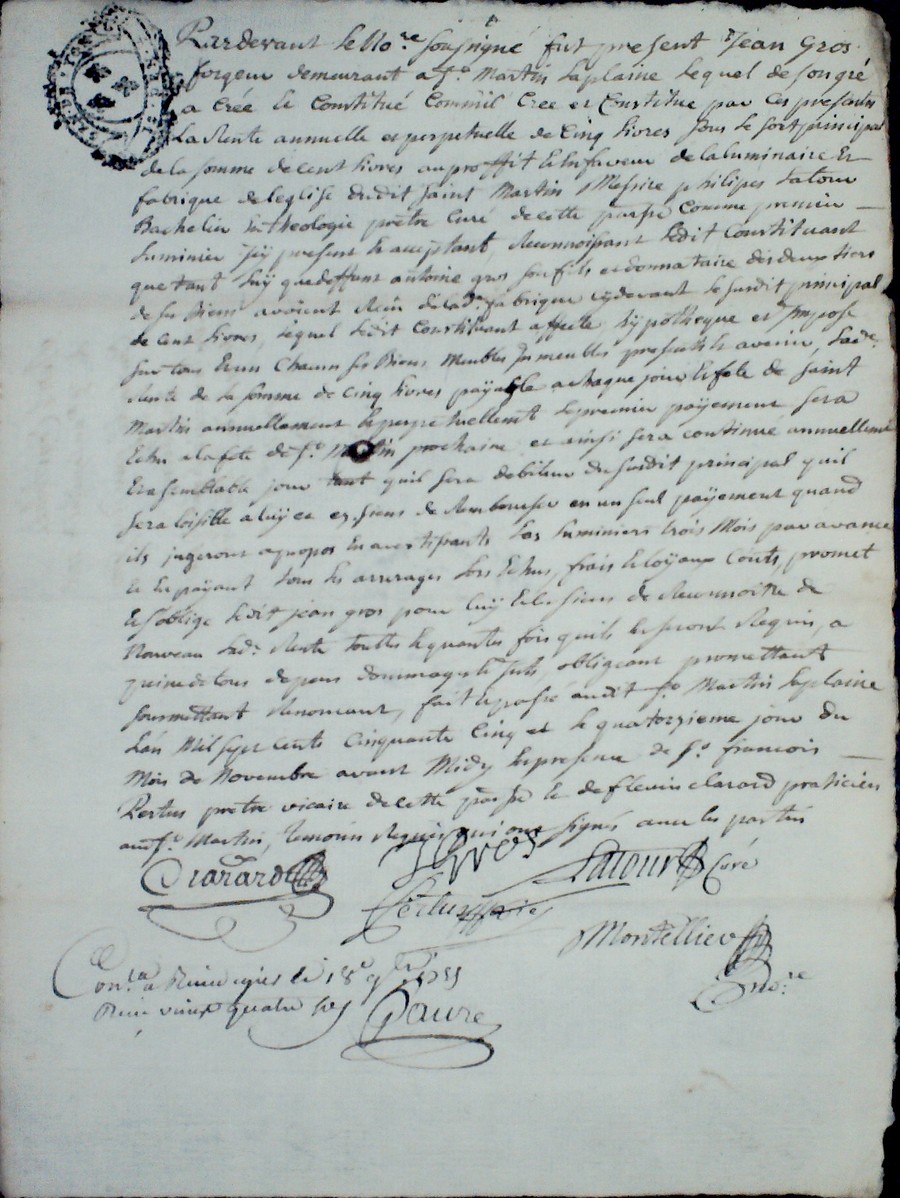 Pardevant le No.re soussigné fut present Jean Gros
forgeur demeurant a St. Martin Laplaine lequel de son gré
a Créé et Constitué Comm'il Crée et Constitue par ces presentes
La Rente annuelle et perpetuelle de Cinq livres sous le sort principal
de la somme de cent livres au proffit et en faveur de la luminaire Et
fabrique de leglise dudit Saint Martin Messire philipes Latour
Bachelier en theologie prêtre Curé de cette parsse Comme premier
Luminier icy present et acceptant, Reconnoissant ledit Constituant
que tant luy que deffunt antoine gros son fils et donnataire des deux tiers
de ses Biens avoient Reçu de lade. fabrique cydevant le susdit principal
de cent livres, lequel ledit Constituant affecte hypotheque et Impose
sur tous Et un Chacun ses Biens Meubles Immeubles presents et avenir, Lade.
Rente de la somme de Cinq livres payable achaque jour et fete de Saint
Martin annuellement et perpetuellement le premier payement sera
Echu a la fete de St. Martin prochaine et ainsi sera continue annuellement
Et a semblable jour tant quil sera debiteur du susdit principal quil
sera loisible a luy et es siens de Rembourser en un seul payement quand
ils jugeront apropos En avertissants Les Luminiers trois Mois par avance
et En payant tous les arrerages lors Echus, frais et loyaux Couts, promet
et soblige ledit jean gros pour luy Et les siens de Reconnoitre de
Nouveau Lade. Rente toutes et quantes fois quils En seront Requis, a
peine de tous depens dommages Interets, obligeant promettant
soumettant Renonçant, fait et passé audit St. Martin Laplaine
L'an Mil sept cents Cinquante Cinq et le quatorzieme jour du
Mois de Novembre avant Midy En presence de Sr. francois
Pertus prêtre vicaire de cette parsse et de flevin Clarard praticien
aud. St. Martin, temoins Requis qui ont signés avec les parties
JGros Latour Curé
Pertus
Montellier
No.re
Con.lé a Rive de gier le 18e 9bre 1755
Reçu vingt quatre sols Faure